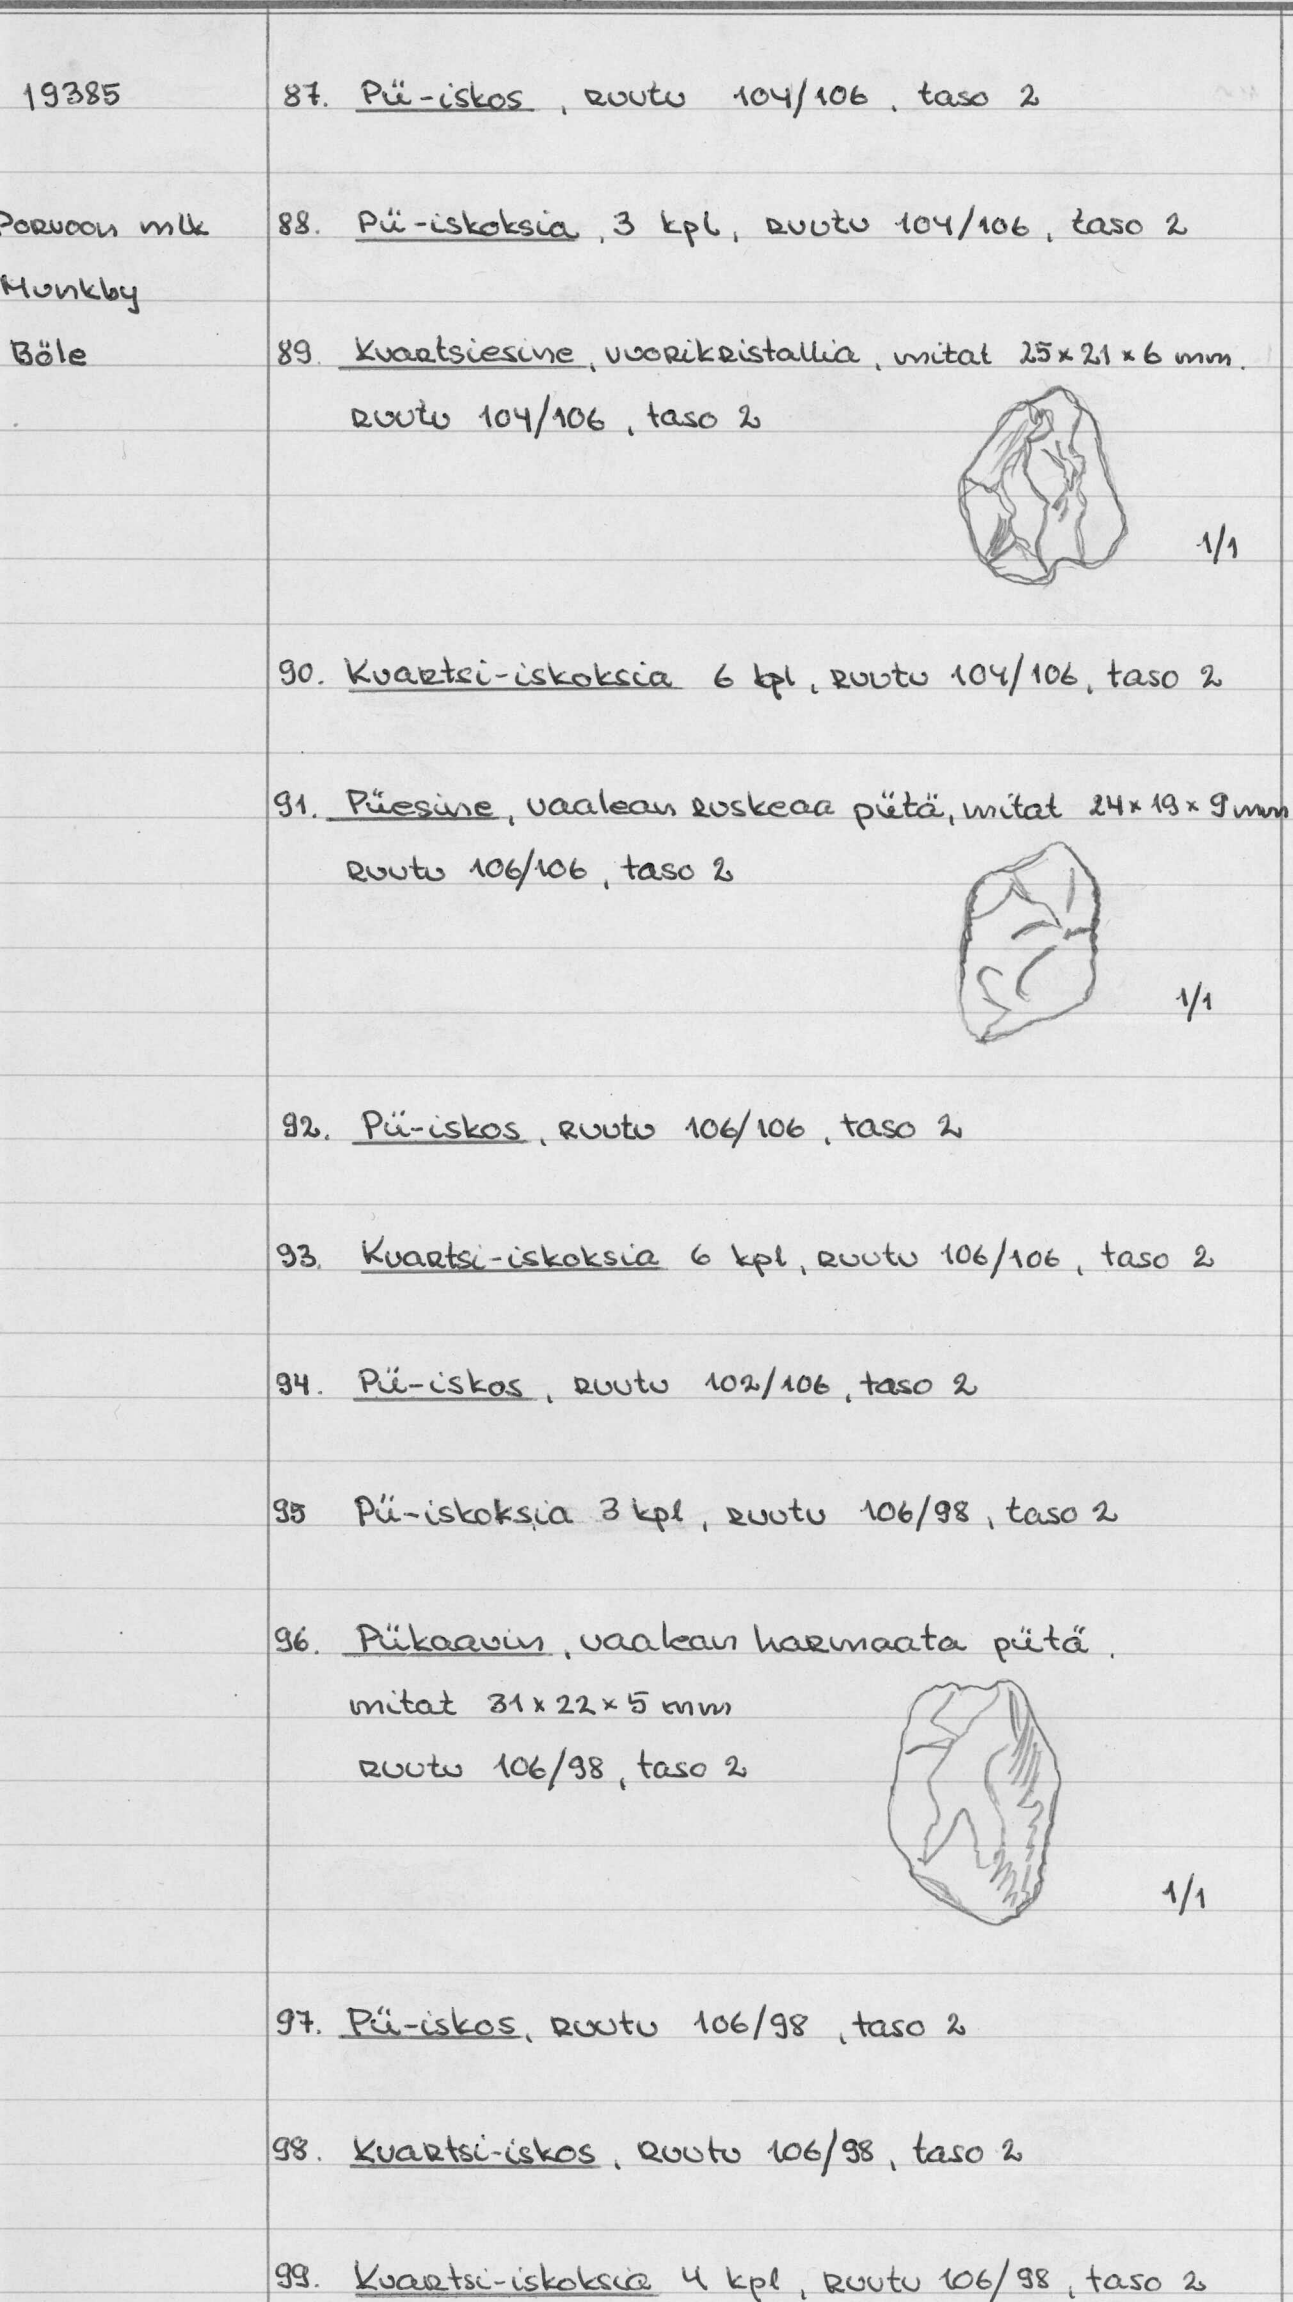 19385
87. Pii-iskos, ruutu 104/106, taso 2
Porvoon mlk
88. Pii-iskoksia, 3 kpl, ruutu 104/106, taso 2
Munkby
Böle
89. Kvartsiesine, vuorikristallia, mitat 25x21x6 mm.
ruutu 104/106, taso 2
1/1
90. Kvartsi-iskoksia 6 kpl, ruutu 104/106, taso 2
91. Piiesine, vaalean ruskeaa piitä, mitat 24x19x9 mm
ruutu 106/106, taso 2
1/1
92. Pii-iskos, ruutu 106/106, taso 2
93. Kvartsi-iskoksia 6 kpl, ruutu 106/106, taso 2
94. Pii-iskos, ruutu 102/106, taso 2
95 Pii-iskoksia 3 kpl, ruutu 106/98, taso 2
96. Piikaavin, vaalean harmaata piitä.
mitat 31x22x5 mm
ruutu 106/98, taso 2
1/1
97. Pii-iskos, ruutu 106/98, taso 2
98. Kvartsi-iskos, ruutu 106/98, taso 2
99. Kvartsi-iskoksia 4 kpl, ruutu 106/98, taso 2